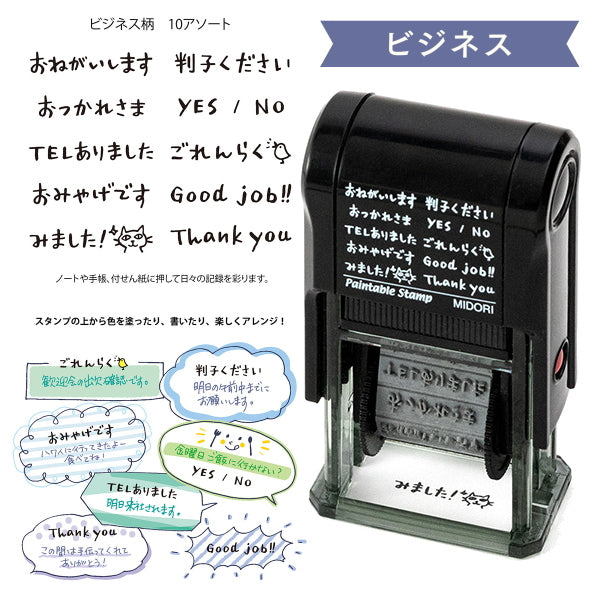 ビジネス柄 10アソート
おねがいします 判子ください
おつかれさま YES / NO
TELありました ごれんらく
おみやげです Good job!!
みました! Thank you
ノートや手帳、付せん紙に押して日々の記録を彩ります。
スタンプの上から色を塗ったり、書いたり、楽しくアレンジ!
ごれんらく
歓迎会の出欠確認です。
判子ください
明日の午前中までに
お願いします。
おみやげです
ハワイに行ってきたよー
食べてね!
金曜日ご飯に行かない?
YES / NO
TELありました
明日来社されます。
Thank you
この間は手伝ってくれて
ありがとう!
Good job!!
ビジネス
おねがいします 判子ください
おつかれさま YES / NO
TELありました ごれんらく
おみやげです Good job!!
みました! Thank you
Paintable Stamp MIDORI
みました!